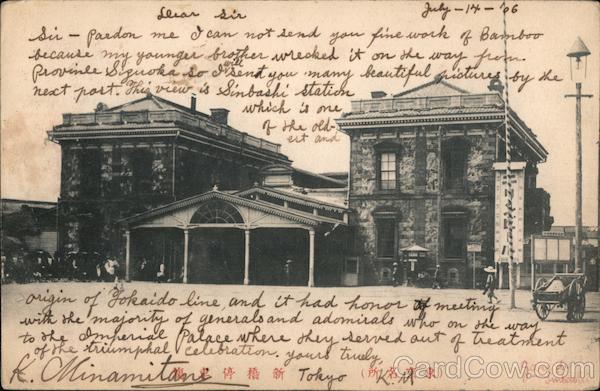 Dear Sir
July-14-'06
Sir - Pardon me I can not send you fine work of Bamboo
because my younger brother wrecked it on the way from
Province Sizuoka so I will send you many beautiful pictures by the
next part. This view is Sinbashi Station
which is one
of the old-
est and
origin of Tokaido line and it had honor of meeting
with the majority of generals and adomirals who on the way
to the Imperial Palace where they served out of treatment
of the triumphal celebration. yours truly
K. Minamitani
Tokyo K. M
(所名京東) 新橋停車場
CardCow.com